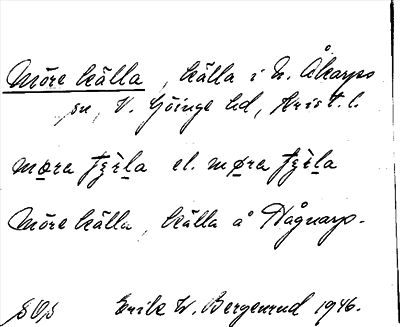 Möre källa, källa i N. Åkarps
sn, V. Göinge hd, Krist. l.
møra el. møra
Möre källa, källa å Hågnarp.
Erik W. Bergenrud 1946.